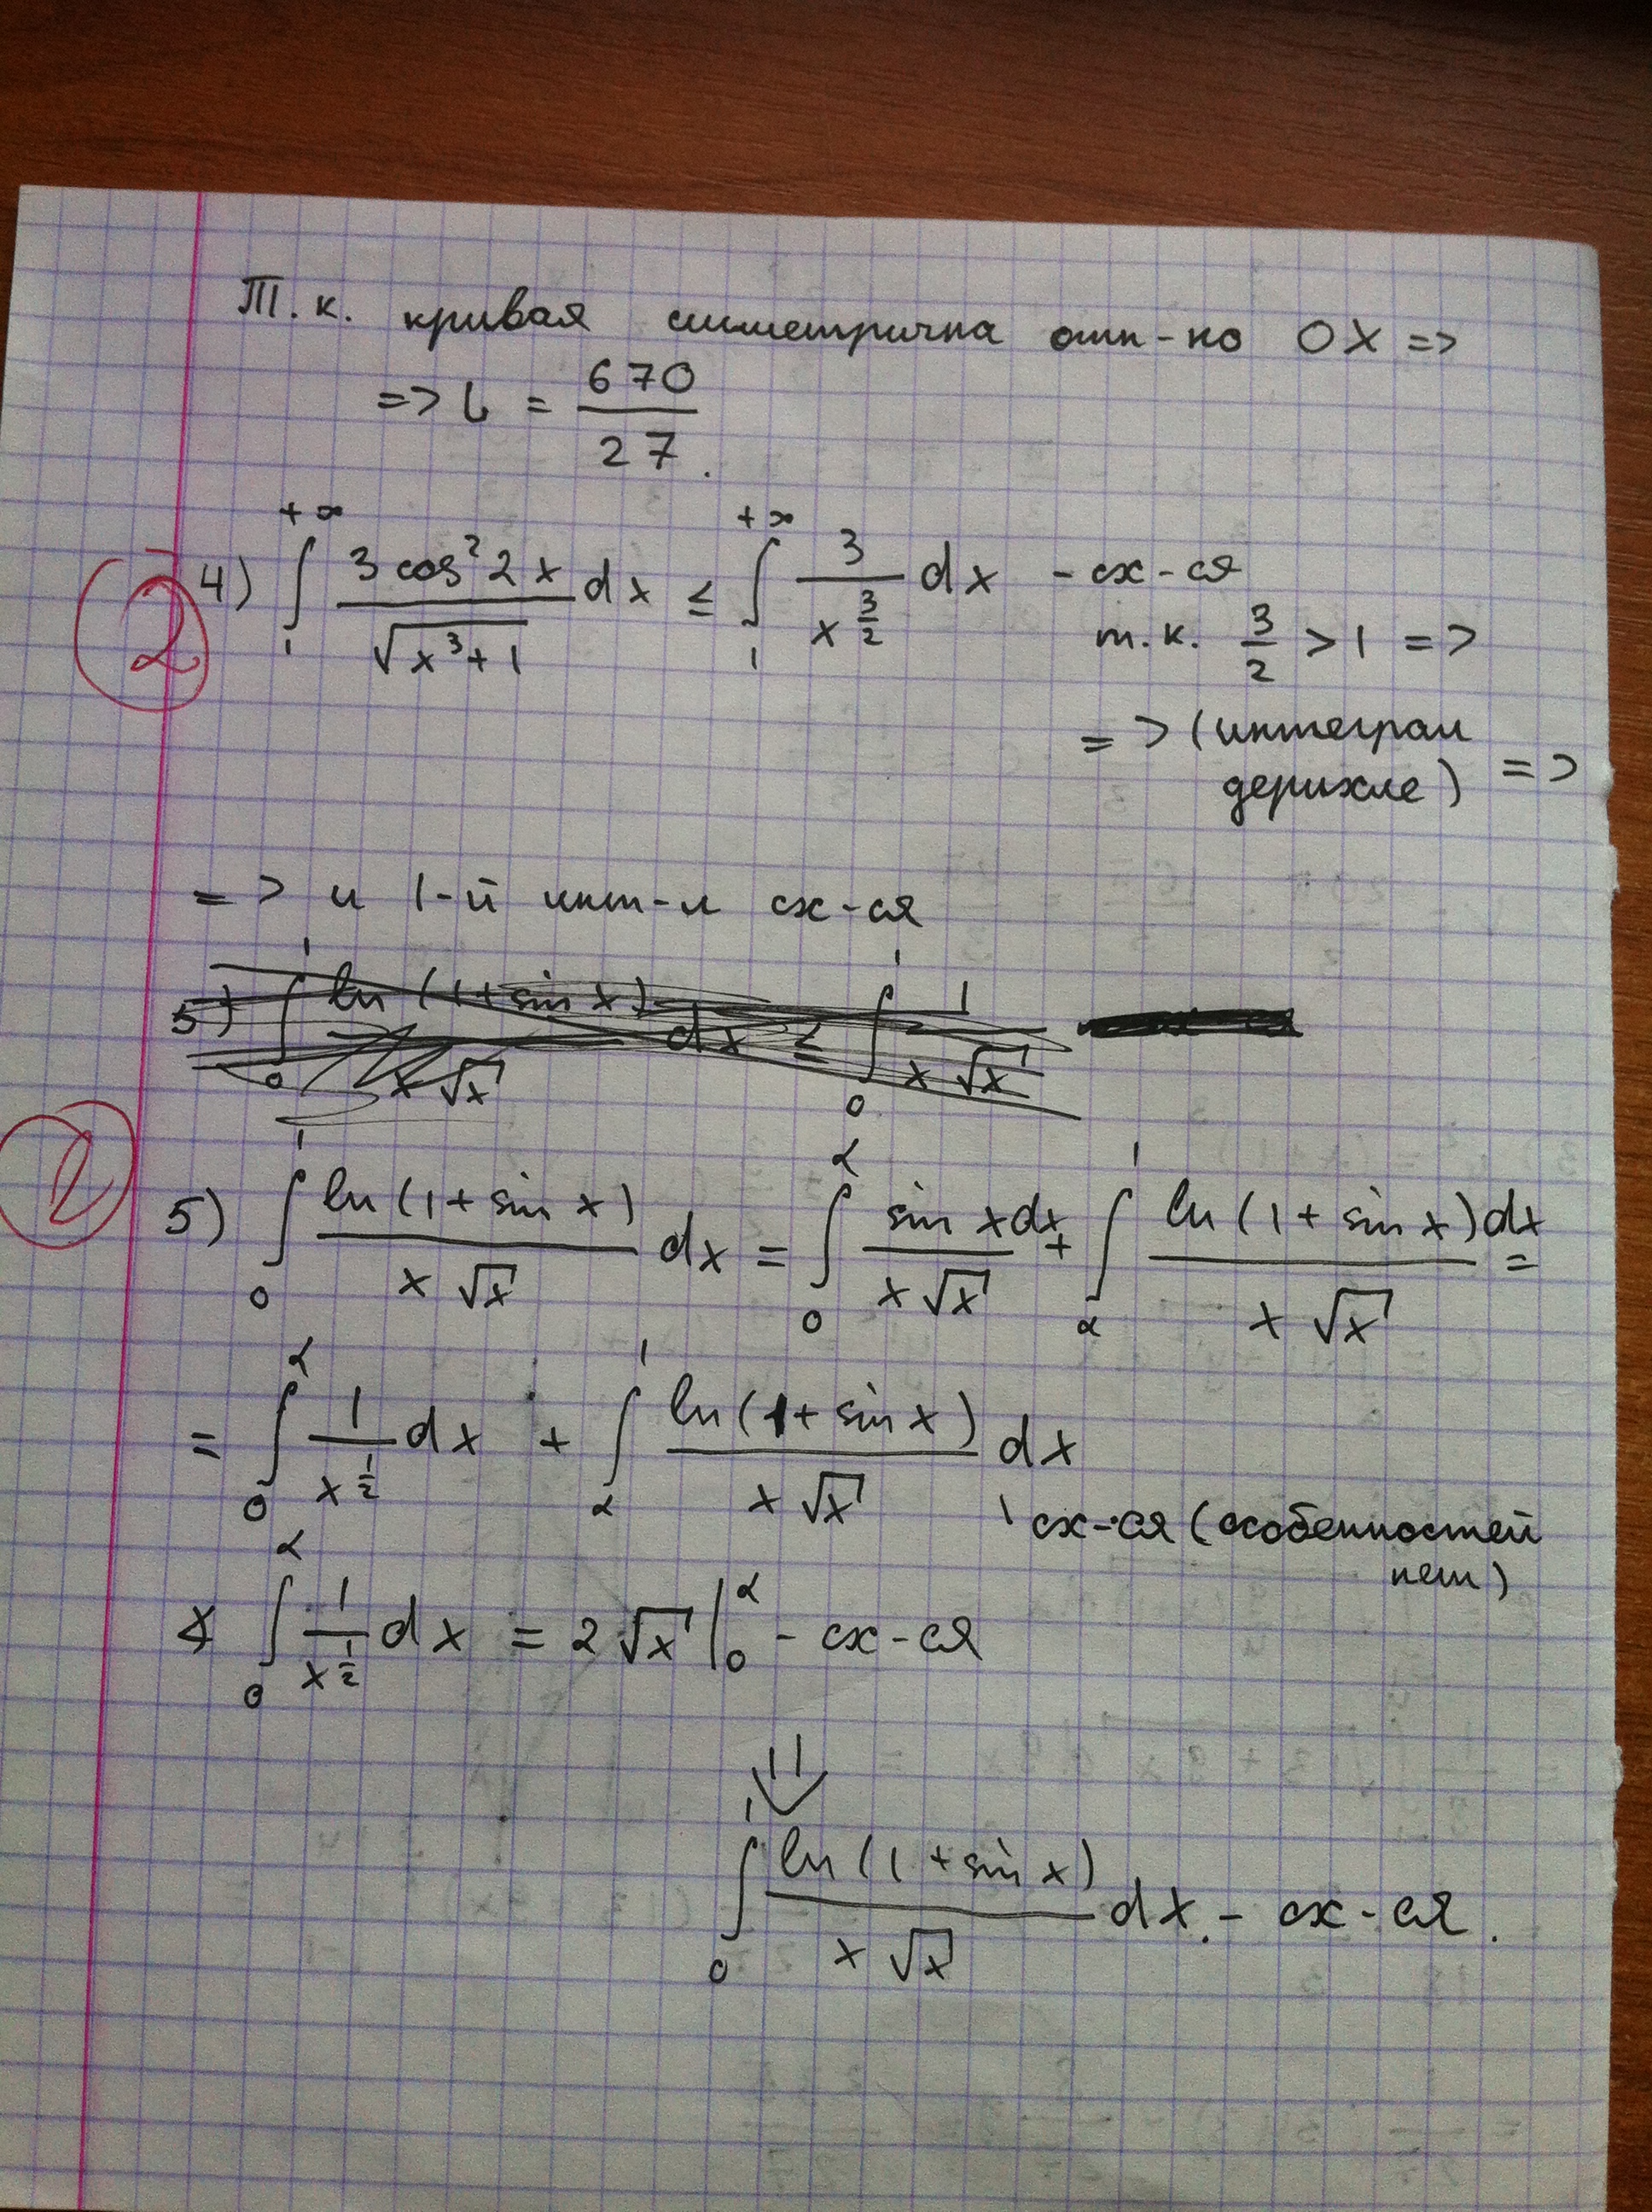 Т.к. кривая симметрична отн-но OX =>
=> L = 670/27.
② 4) ∫₁^{+∞} 3cos²2x/√(x³+1) dx ≤ ∫₁^{+∞} 3/x^{3/2} dx - сх-ся
т.к. 3/2 > 1 =>
=> (интеграл
дерихле) =>
=> и 1-й инт-л сх-ся
5) ∫₀¹ ln(1+sin x)/(x√x) dx ≤ ∫₀¹ 1/(x√x)
5) ∫₀¹ ln(1+sin x)/(x√x) dx = ∫₀^α sin x dx/(x√x) + ∫_α¹ ln(1+sin x)dx/(x√x) =
= ∫₀^α 1/x^{1/2} dx + ∫_α¹ ln(1+sin x)/(x√x) dx
сх-ся (особенностей
нет)
∫₀^α 1/x^{1/2} dx = 2√x |₀^α - сх-ся
⇓
∫₀¹ ln(1+sin x)/(x√x) dx. - сх-ся.